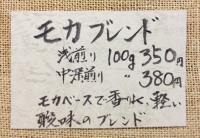 モカブレンド
浅煎り 100g 350円
中深煎り 〃 380円
モカベースで香り良く、軽い
酸味のブレンド